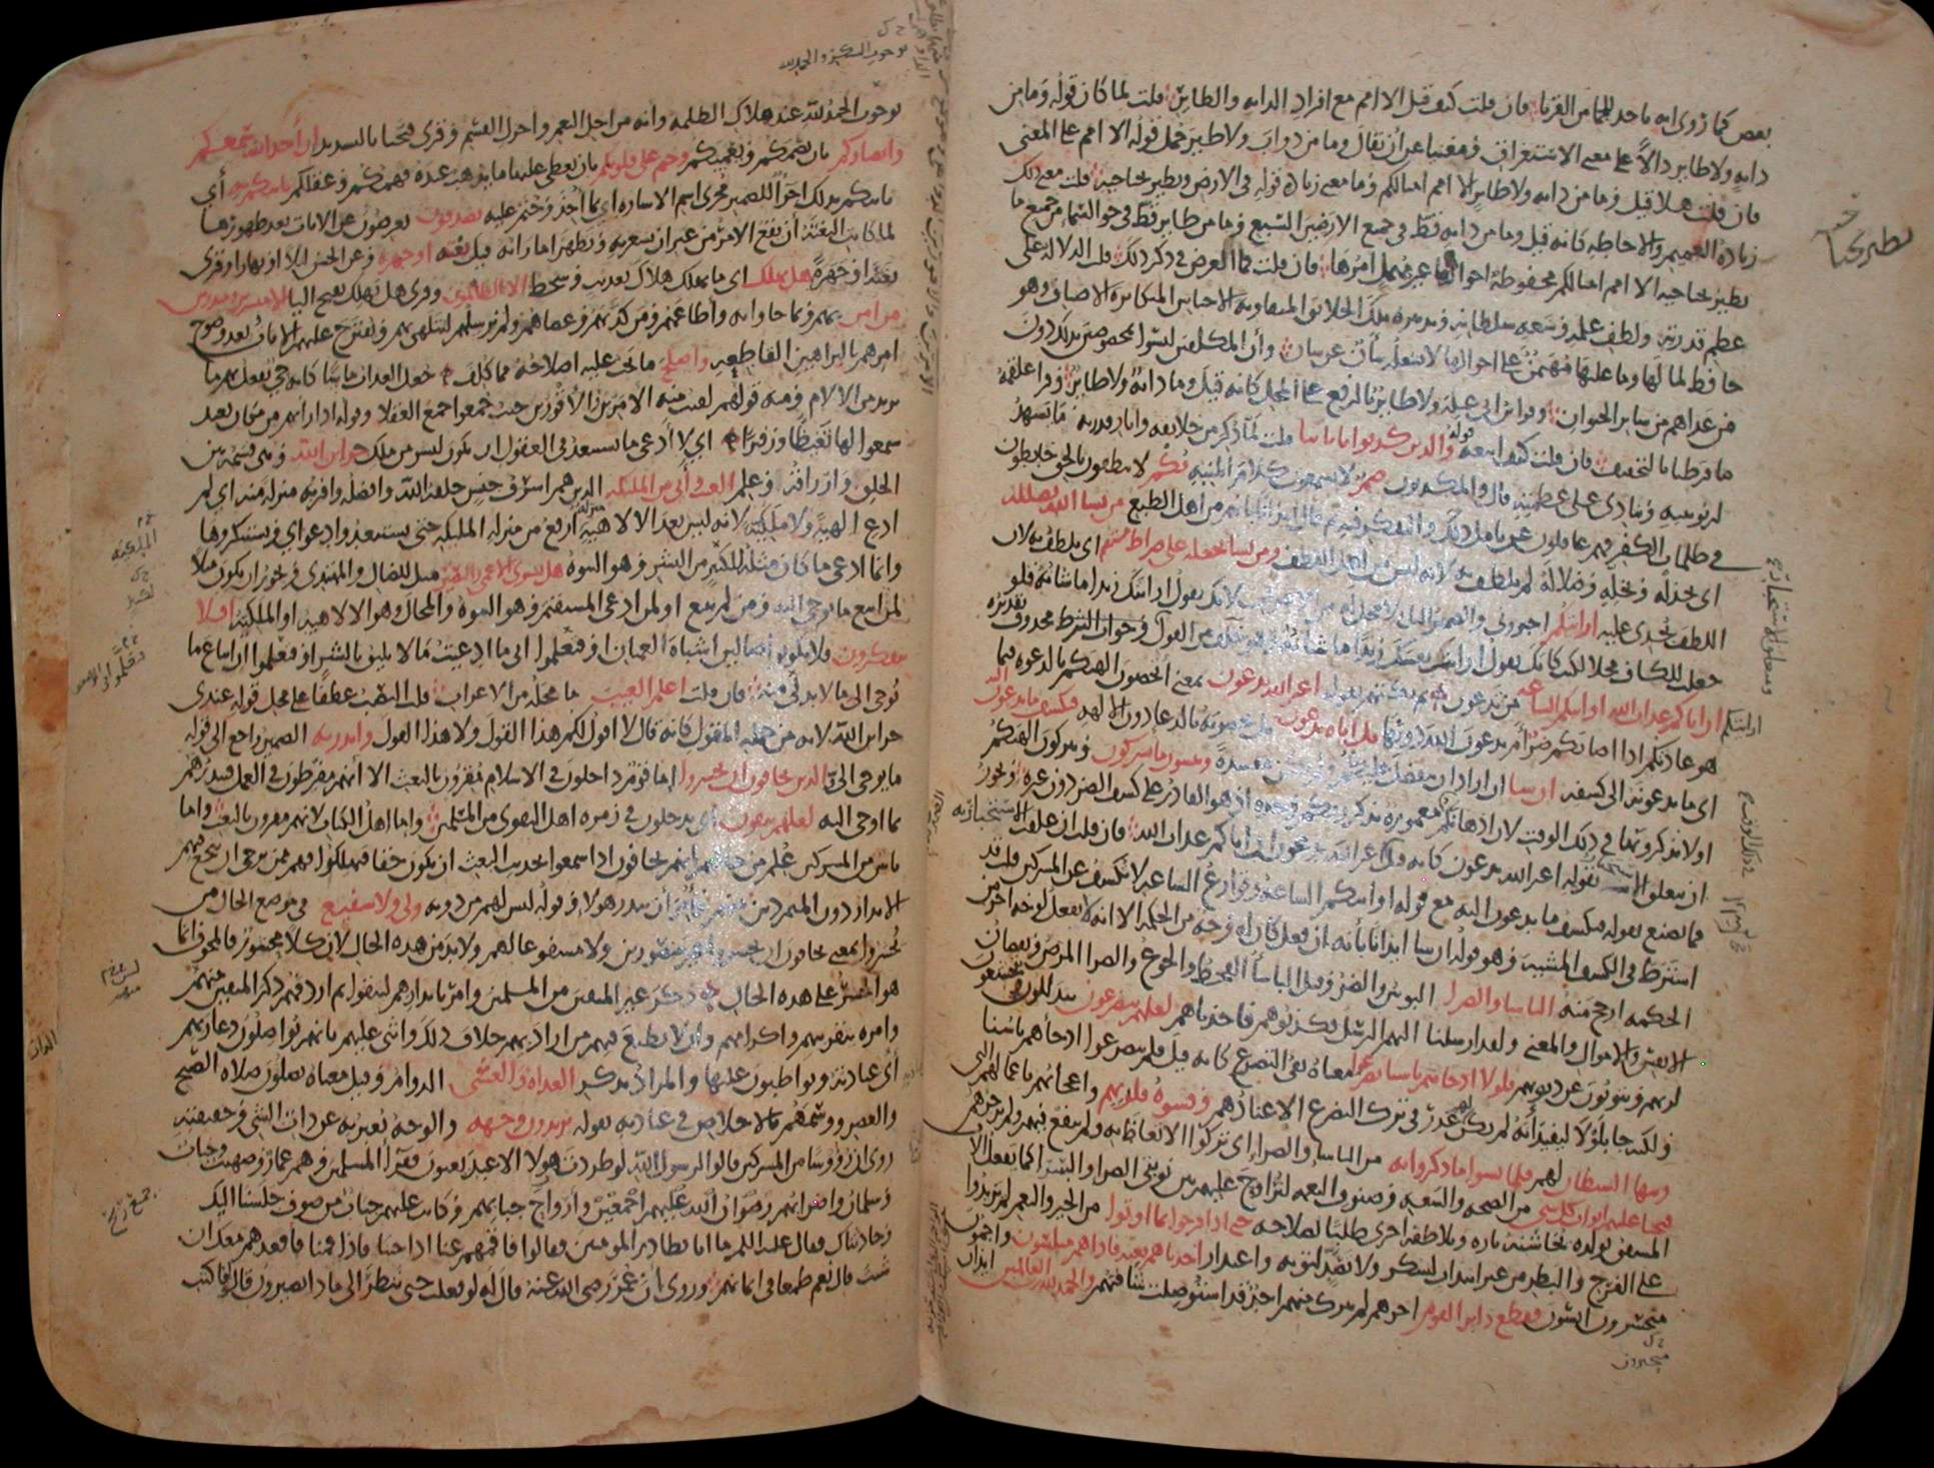 بعض كما روى انه ياخذ للجما من القرنا فان قلت كيف قيل الا امم مع افراد الدابه والطاير قلت لما كان قوله وما من
دابه ولا طاير دالا على معنى الاستغراق ومغنيا عن ان يقال وما من دواب ولا طير حمل قوله الا امم على المعنى
فان قلت هلا قيل وما من دابه ولا طاير الا امم امثالكم وما معنى زيادة قوله في الارض ويطير بجناحيه قلت معنى ذلك
زيادة التعميم والاحاطه كانه قيل وما من دابه قط في جميع الارضين السبع وما من طاير قط في جو السما من جميع ما
يطير بجناحيه الا امم امثالكم محفوظة احوالها غير مهمل امرها فان قلت فما الغرض في ذكر ذلك قلت الدلالة على
عظم قدرته ولطف علمه وسعه سلطانه وتدبيره تلك الخلايق المتفاوته الاجناس المتكاثرة الاصناف وهو
حافظ لما لها وما عليها مهيمن على احوالها لا يشغله شان عن شان وأن المكلفين ليسوا بمخصوصين بذلك دون
من عداهم من ساير الحيوان وقرا ابن ابي عبلة ولا طاير بالرفع على المحل كانه قيل وما دابة ولا طاير وقرا علقمة
ما فرطنا بالتخفيف فان قلت كيف اتبعه قوله والذين كذبوا باياتنا قلت لما ذكر من خلايقه واثار قدرته ما تشهد
لربوبيته وينادي على عظمته قال والمكذبون صم لا يسمعون كلام المنبه بكم لا ينطقون بالحق خابطون
في ظلمات الكفر فهم غافلون عن تامل ذلك والتفكر فيه ثم قال ايذانا بانهم من اهل الطبع من يشا الله يضلله
اى يخذله ويخله وضلاله لم يلطف به لانه ليس من اهل اللطف ومن يشا يجعله على صراط مستقيم اى يلطف به لان
اللطف يجدى عليه ارايتكم اخبروني والضمير الثاني لا محل له من الاعراب لانك تقول ارايتك زيدا ما شانه فلو
جعلت للكاف محلا لكنت كانك تقول ارايت نفسك زيدا ما شانه وهو خلف من القول وجواب الشرط محذوف تقديره
ان اتاكم عذاب الله او اتتكم الساعه من تدعون ثم بكتهم بقوله اغير الله تدعون بمعنى اتخصون الهتكم بالدعوة فيما
هو عادتكم اذا اصابكم ضر ام تدعون الله دونها بل اياه تدعون بل تخصونه بالدعا دون الالهه فيكشف ما تدعون اليه
اى ما تدعونه الى كشفه ان شا ان اراد ان يتفضل عليكم ولم يكن مفسدة وتنسون ما تشركون وتتركون الهتكم
او لا تذكرونها في ذلك الوقت لان اذهانكم مغموره بذكر ربكم وحده اذ هو القادر على كشف الضر دون غيره ويجوز
ان يتعلق الاستخبار بقوله اغير الله تدعون كانه قيل اغير الله تدعون ان اتاكم عذاب الله فان قلت ان علقت الاستخبار به
فما تصنع بقوله فيكشف ما تدعون اليه مع قوله او اتتكم الساعه وقوارع الساعه لا تكشف عن المشركين قلت قد
اشترط في الكشف المشيه وهو قوله ان شا ايذانا بانه ان فعل كان له وجه من الحكمه الا انه لا يفعل لوجه اخر من
الحكمه ارجح منه الباسا والضرا البوس والضر وقيل الباسا القحط والجوع والضرا المرض ونقصان
الانفس والاموال والمعنى ولقد ارسلنا اليهم الرسل فكذبوهم فاخذناهم لعلهم يتضرعون يتذللون ويتخشعون
لربهم ويتوبون عن ذنوبهم فلولا اذ جاءهم باسنا تضرعوا معناه نفى التضرع كانه قيل فلم يتضرعوا اذ جاهم باسنا
ولكنه جا بلولا ليفيد أنه لم يكن لهم عذر في ترك التضرع الا عنادهم وقسوة قلوبهم واعجابهم باعمالهم التى
زينها الشيطان لهم فلما نسوا ما ذكروا به من الباسا والضرا اى تركوا الاتعاظ به ولم ينفع فيهم ولم يزجرهم
فتحنا عليهم ابواب كل شى من الصحه والسعه وصنوف النعمه لنزاوج عليهم بين نوبتى الضرا والسرا كما يفعل الاب
المشفق بولده يخاشنه تاره ويلاطفه اخرى طلبا لصلاحه حتى اذا فرحوا بما اوتوا من الخير والنعم لم يزيدوا
على الفرح والبطر من غير انتداب لشكر ولا تصد لتوبه واعتذار اخذناهم بغته فاذا هم مبلسون واجمون
متحسرون ايسون فقطع دابر القوم اخرهم لم يترك منهم احد قد استوصلت شافتهم والحمد لله رب العالمين ايذان
بوجوب الحمد لله عند هلاك الظلمه وانه من اجل النعم واجزل القسم وقرى فتحنا بالتشديد ان أخذ الله سمعكم
وابصاركم بان يصمكم ويعميكم وختم على قلوبكم بان يغطى عليها ما يذهب عنده فهمكم وعقلكم ياتيكم به أي
ياتيكم بذلك اجرا للضمير مجرى اسم الاشاره اى بما اخذ وختم عليه يصدفون يعرضون عن الايات بعد ظهورها
لما كانت البغتة أن يقع الامر من غير ان يشعر به وتظهر اماراته قيل بغته او جهرة وعن الحسن ليلا او نهارا وقرى
بغتة او جهرة هل يهلك اى ما يهلك هلاك تعذيب وسخط الا الظالمون وقرى هل يهلك بفتح اليا الا مبشرين ومنذرين
من امن بهم وبما جاوا به واطاعهم ومن كذبهم وعصاهم ولم نرسلهم ليتلهى بهم ويقترح عليهم الايات بعد وضوح
امرهم بالبراهين القاطعه واصلح ما يجب عليه اصلاحه مما كلف جعل العذاب ماسا كانه حي يفعل بهم ما
يريد من الالام ومنه قولهم لقيت منه الامرين والاقورين حيث جمعوا جمع العقلا وقوله اذا راتهم من مكان بعيد
سمعوا لها تغيظا وزفيرا اي لا أدعى ما يستبعد في العقول ان يكون لبشر من ملك خزاين الله وهى قسمه بين
الخلق وارزاقه وعلم الغيب وانى من الملئكه الذين هم اشرف جنس خلقه الله وافضله واقربه منزله منه اى لم
ادع الهية ولا ملكية لانه ليس بعد الالاهية منزلة ارفع من منزله المليكه حتى تستبعدوا دعواي وتستنكروها
وانما ادعى ما كان مثله لكثير من البشر وهو النبوة هل يستوى الاعمى والبصير مثل للضال والمهتدى ويجوز ان يكون مثلا
لمن اتبع ما يوحى اليه ومن لم يتبع او لمن ادعى المستقيم وهو النبوة والمحال وهو الالاهيه او الملكية افلا
تتفكرون فلا تكونوا ضالين اشباه العميان او فتعلموا انى ما ادعيت ما لا يليق بالبشر او فتعلموا ان اتباع ما
يوحى الى ما لا بد لي منه فان قلت اعلم الغيب ما محله من الاعراب قلت النصب عطفا على محل قوله عندى
خزاين الله لانه من جمله المقول كانه قال لا اقول لكم هذا القول ولا هذا القول وانذر به الضمير راجع الى قوله
ما يوحى الى الذين يخافون ان يحشروا اما قوم داخلون في الاسلام مقرون بالبعث الا انهم مفرطون في العمل فينذرهم
بما اوحى اليه لعلهم يتقون أي يدخلون في زمره اهل التقوى من المسلمين واما اهل الكتاب لانهم مقرون بالبعث واما
ناس من المشركين علم من حالهم انهم يخافون اذا سمعوا بحديث البعث ان يكون حقا فيهلكوا فهم ممن يرجى ان ينجع فيهم
الانذار دون المتمردين منهم فامر أن ينذر هولا وقوله ليس لهم من دونه ولى ولا شفيع في موضع الحال من
يحشروا بمعنى يخافون ان يحشروا غير منصورين ولا مشفوعا لهم ولا بد من هذه الحال لان كلا محشور فالمخوف انما
هو الحشر على هذه الحال ذكر غير المتقين من المسلمين وامر بانذارهم ليتقوا ثم اردفهم ذكر المتقين منهم
وامره بتقريبهم واكرامهم وان لا يطيع فيهم من اراد بهم خلاف ذلك واثنى عليهم بانهم يواصلون دعا ربهم
أى عبادته ويواظبون عليها والمراد بذكر الغداه والعشى الدوام وقيل معناه يصلون صلاه الصبح
والعصر ووسمهم بالاخلاص في عبادته بقوله يريدون وجهه والوجه يعبر به عن ذات الشى وحقيقته
روى ان روسا من المشركين قالوا لرسول الله لو طردت هولا الاعبد يعنون فقرا المسلمين وهم عمار وصهيب وخباب
وسلمان واضرابهم رضوان الله عليهم اجمعين وارواح جبابهم وكانت عليهم جباب من صوف جلسنا اليك
وحادثناك فقال عليه السلم ما انا بطارد المومنين فقالوا فاقمهم عنا اذا جينا فاذا قمنا فاقعدهم معك ان
شئت قال نعم طمعا في ايمانهم وروى ان عمر رضى الله عنه قال له لو فعلت حتى ننظر الى ماذا يصيرون قالوا فاكتب